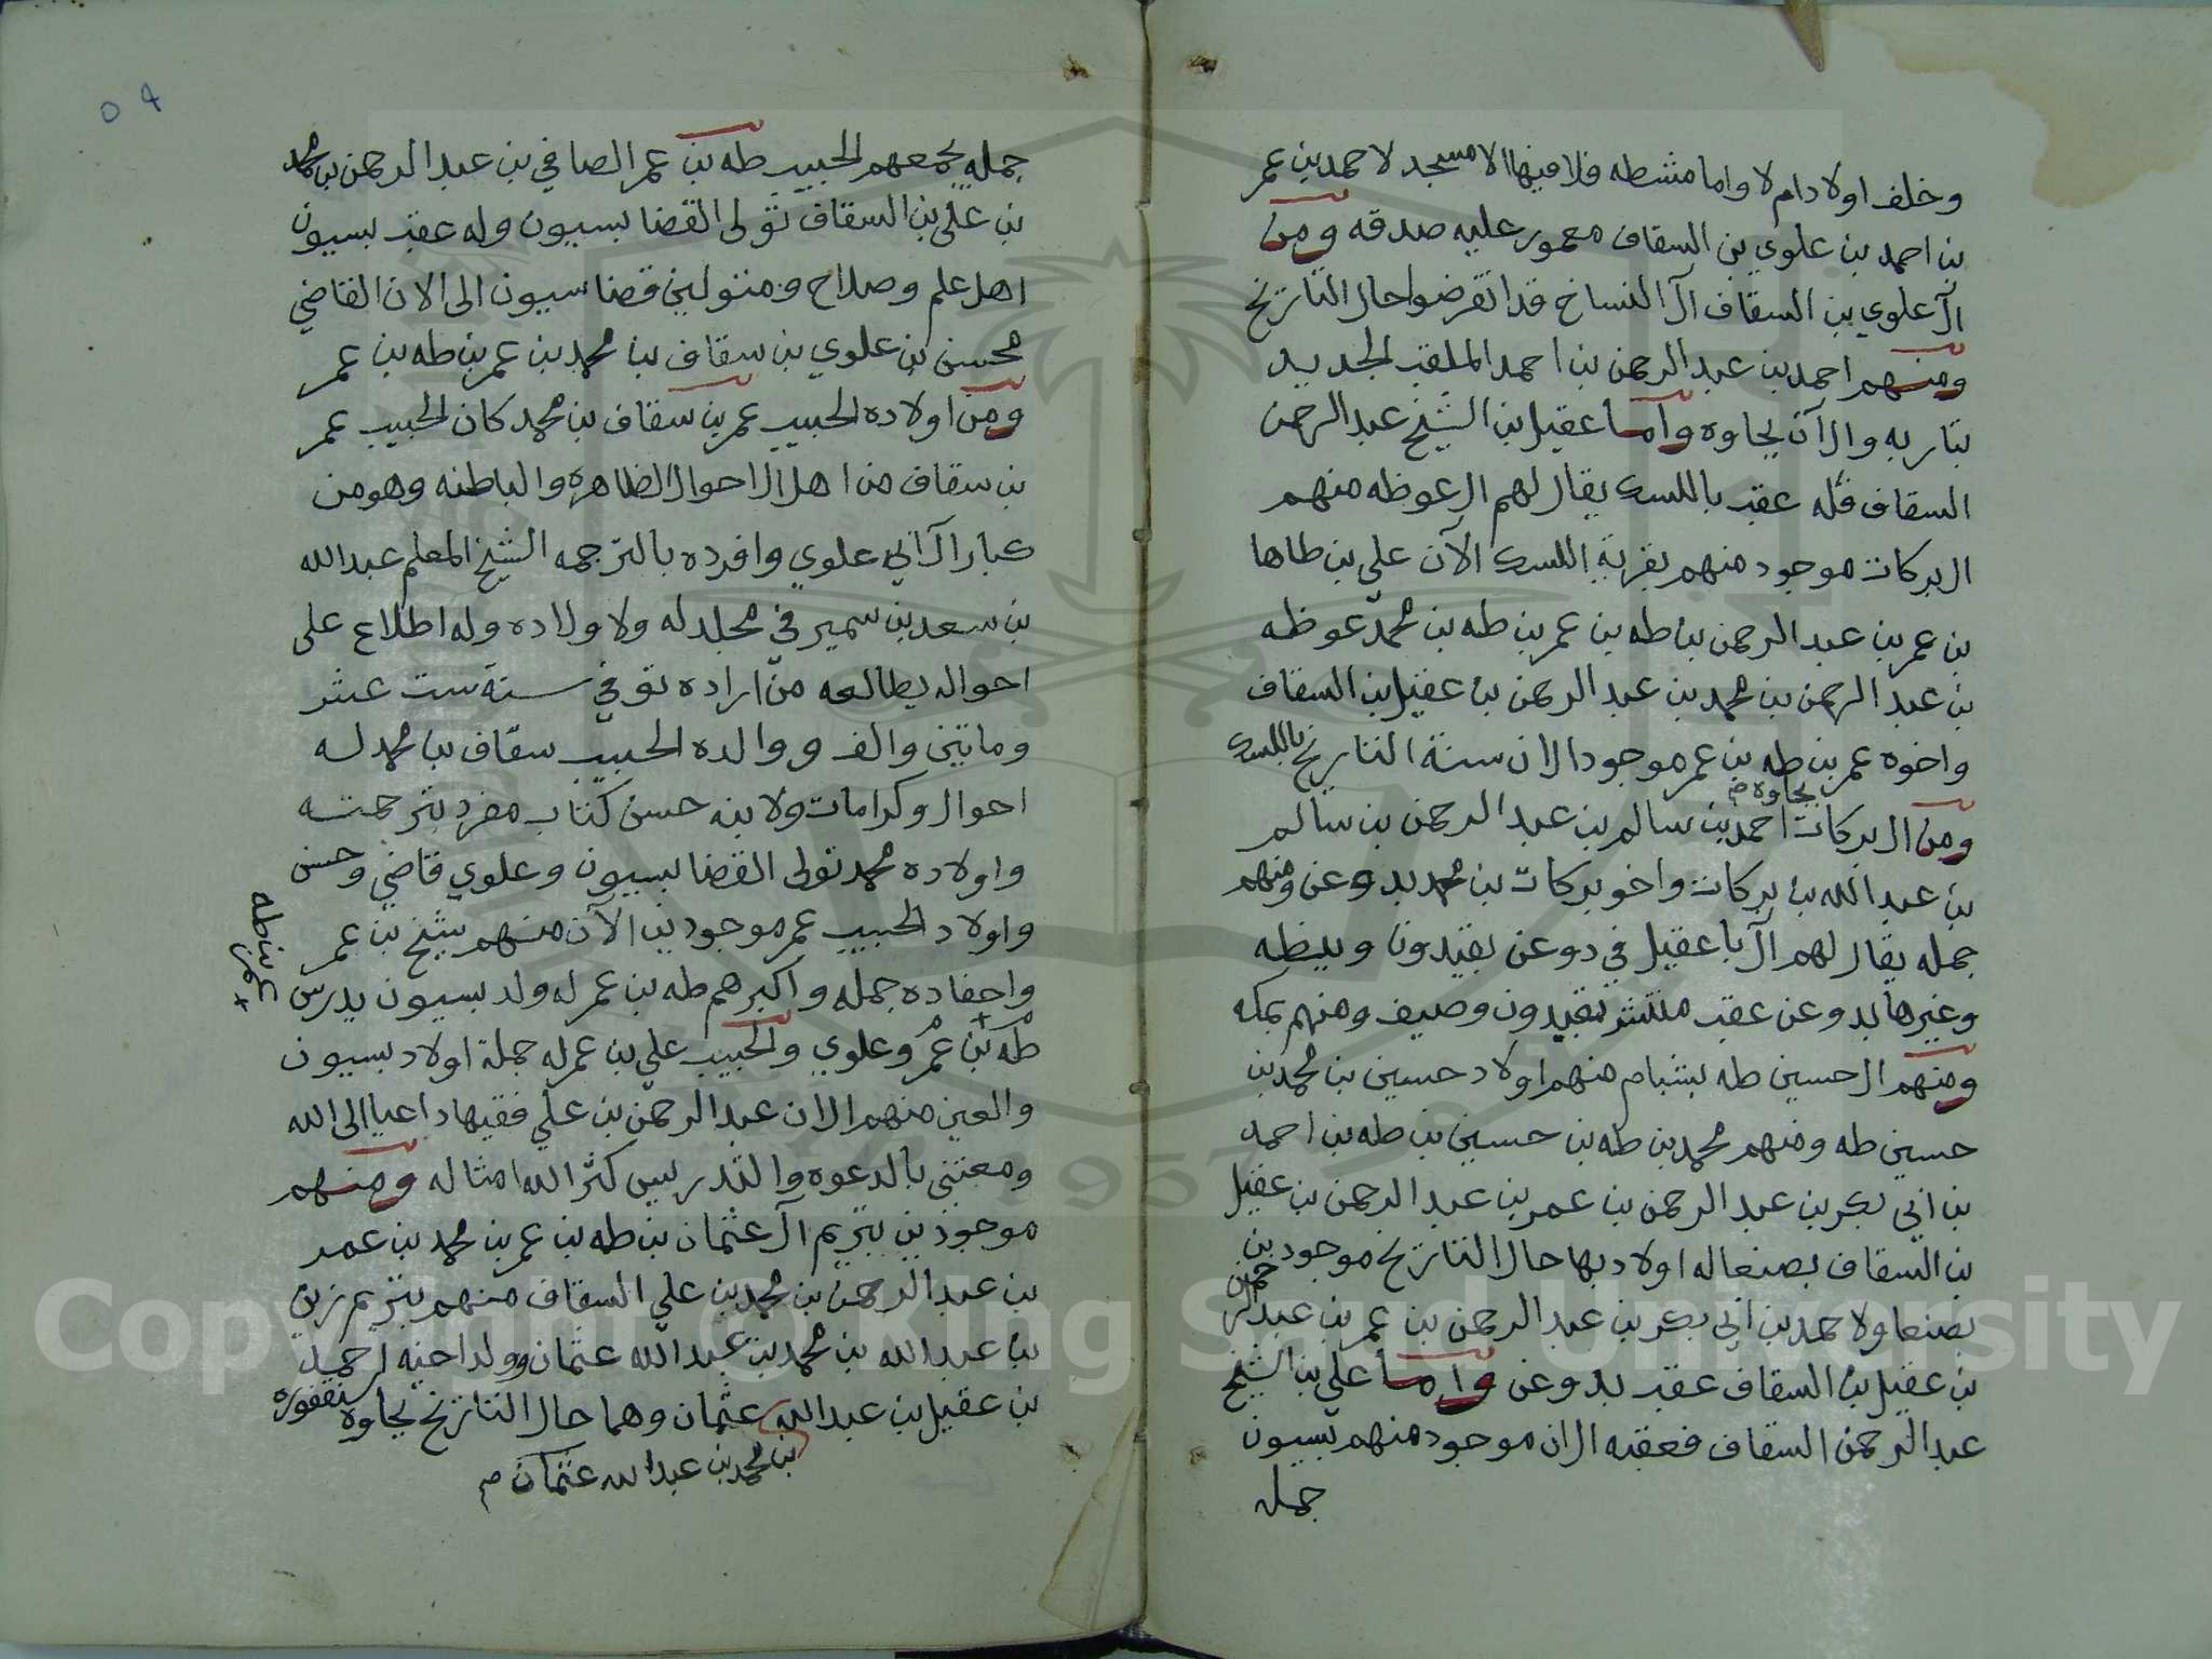 وخلف اولادا ام لا واما مشطه فلا فيها الا مسجد لاحمد بن عمر
بن احمد بن علوي بن السقاف معمور عليه صدقه ومن
آل علوي بن السقاف آل النساخ قد انقرضوا حال التاريخ
ومنهم احمد بن عبد الرحمن بن احمد الملقب الجديد
بتاربه والآن بجاوه واما عقيل بن الشيخ عبد الرحمن
السقاف فله عقب باللسك يقال لهم ال عوظه منهم
ال بركات موجود منهم بقرية اللسك الآن علي بن طاها
بن عمر بن عبد الرحمن بن طه بن عمر بن طه بن محمد عوظه
بن عبد الرحمن بن محمد بن عبد الرحمن بن عقيل بن السقاف
واخوه عمر بن طه بن عمر موجود الان سنة التاريخ باللسك
بجاوه م
ومن ال بركات احمد بن سالم بن عبد الرحمن بن سالم
بن عبد الله بن بركات واخو بركات بن محمد بدوعن ومنهم
جمله يقال لهم آل باعقيل في دوعن بقيدون وبيظه
وغيرها بدوعن عقب منتشر بقيدون وصيف ومنهم بمكه
ومنهم ال حسين طه بشبام منهم اولاد حسين بن محمد بن
حسين طه ومنهم محمد بن طه بن حسين بن طه بن احمد
بن ابي بكر بن عبد الرحمن بن عمر بن عبد الرحمن بن عقيل
بن السقاف بصنعا له اولاد بها حال التاريخ موجودين
بصنعا ولاحمد بن ابي بكر بن عبد الرحمن بن عمر بن عبد الرحمن
بن عقيل بن السقاف عقب بدوعن واما علي بن الشيخ
عبد الرحمن السقاف فعقبه الان موجود منهم بسيون
جمله
جمله يجمعهم الحبيب طه بن عمر الصافي بن عبد الرحمن بن محمد
بن علي بن السقاف تولى القضا بسيون وله عقب بسيون
اهل علم وصلاح ومتولين قضا سيون الى الان القاضي
محسن بن علوي بن سقاف بن محمد بن عمر بن طه بن عمر
ومن اولاده الحبيب عمر بن سقاف بن محمد كان الحبيب عمر
بن سقاف من اهل الاحوال الظاهره والباطنه وهو من
كبار آل ابي علوي وافرده بالترجمه الشيخ المعلم عبد الله
بن سعد بن سمير في مجلد له ولاولاده وله اطلاع على
احواله يطالعه من اراده توفي سنة ست عشر
وماتين والف ووالده الحبيب سقاف بن محمد له
احوال وكرامات ولابنه حسن كتاب مفرد بترجمته
واولاده محمد تولى القضا بسيون وعلوي قاضي وحسن
واولاد الحبيب عمر موجودين الآن منهم شيخ بن عمر
واحفاده جمله واكبرهم طه بن عمر له ولد بسيون يدرس
عمر بن طه
طه بن عمر وعلوي والحبيب علي بن عمر له جملة اولاد بسيون
والعين منهم الان عبد الرحمن بن علي فقيها داعيا الى الله
ومعتني بالدعوه والتدريس كثر الله امثاله ومنهم
موجودين بتريم آل عثمان بن طه بن عمر بن محمد بن عمر
بن عبد الرحمن بن محمد بن علي السقاف منهم بتريم زين
بن عبد الله بن محمد بن عبد الله عثمان وولد اخيه احمد
بن عقيل بن عبد الله عثمان وهما حال التاريخ بجاوه سنقفوره
بن محمد بن عبد الله عثمان م
Copyright © King Saud University
1957